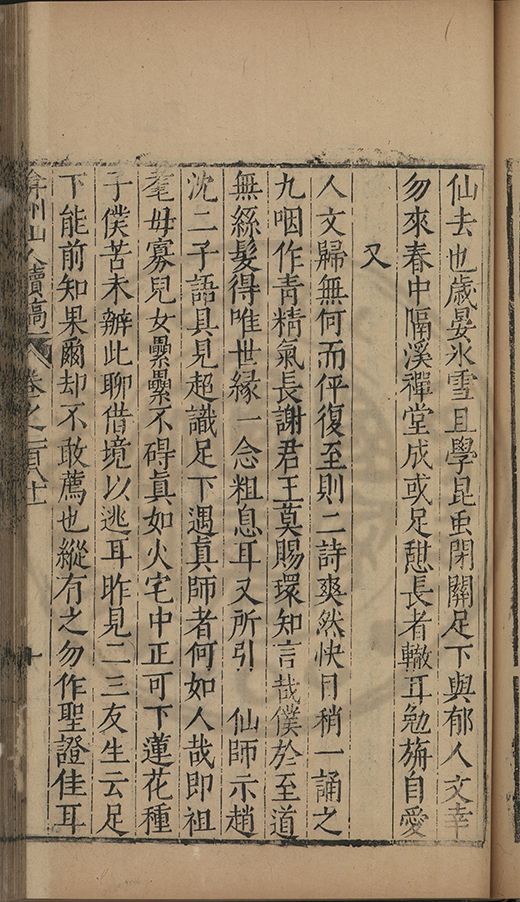 仙去也歲晏氷雪且學昆虫閉關足下與郁人文幸
勿來春中隔溪禪堂成或足憩長者轍耳勉旃自愛
又
人文歸無何而伻復至則二詩爽然快目稍一誦之
九咽作青精氣長謝君王莫賜環知言哉僕於至道
無絲髮得唯世縁一念粗息耳又所引 仙師示趙
沈二子語具見超識足下遇真師者何如人哉即祖
耄母寡兒女纍纍不礙真如火宅中正可下蓮花種
子僕苦未辦此聊借境以逃耳昨見二三友生云足
下能前知果爾却不敢薦也縱有之勿作聖證佳耳
弇州山人續稿 卷之一百八十 十